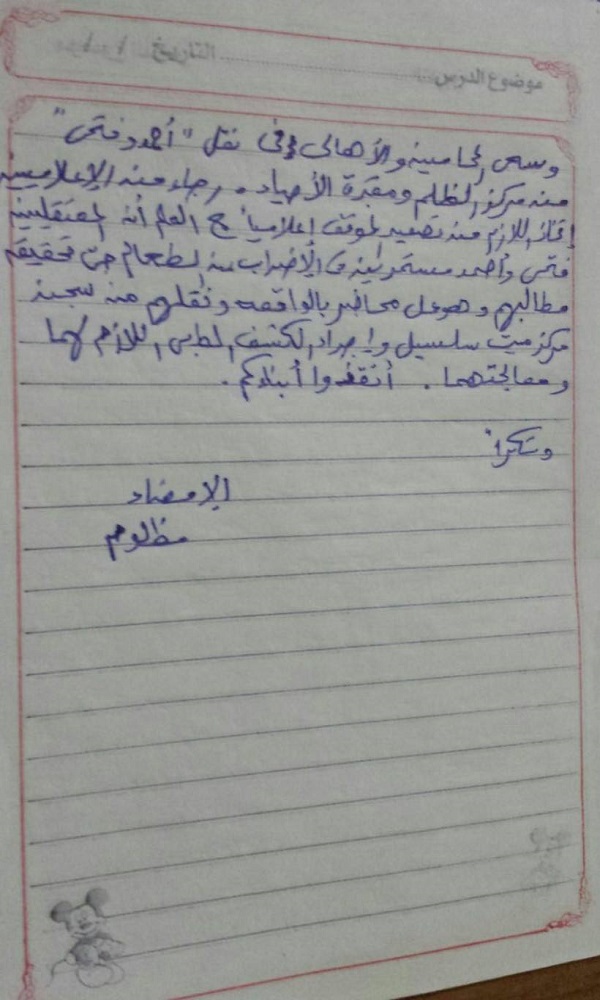 موضوع الدرس ........ التاريخ / /
وسعى المحامين والأهالى فى نقل "أحمد وفتحى"
من مركز الظلم ومقبرة الأحياء. رجاء من الإعلاميين
اتخاذ اللازم من تصعيد الموقف إعلامياً مع العلم أن المعتقلين
فتحى وأحمد مستمرين فى الإضراب عن الطعام حتى تحقيق
مطالبهم وهو عمل محاضر بالواقعه ونقلهم من سجن
مركز ميت سلسيل وإجراء الكشف الطبى اللازم لهما
ومعالجتهما. أنقذوا أبنائكم.
وشكراً
الإمضاء
مظلوم